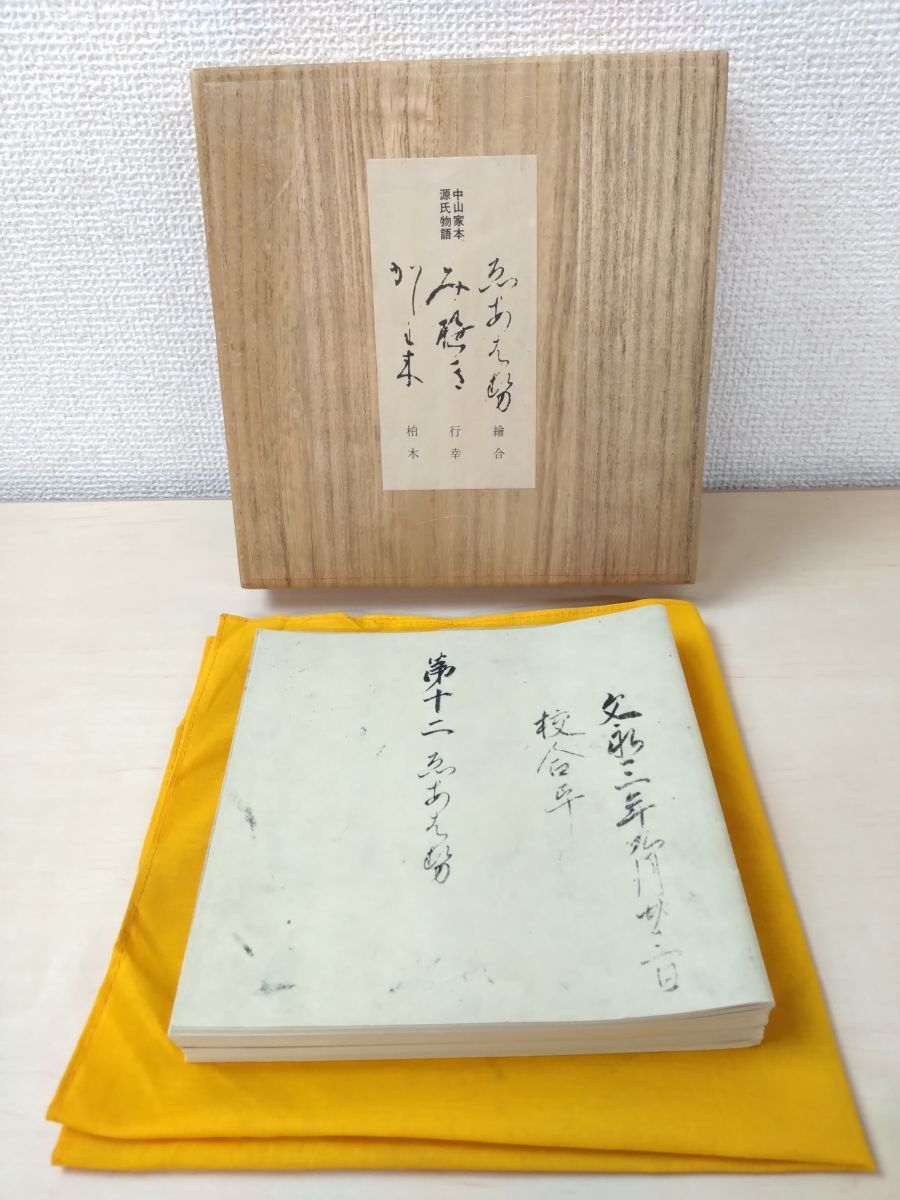 中山家本
源氏物語
ゑあはせ
み行き
かしは木
繪合
行幸
柏木
文永三年
校合畢
第十二ゑあはせ